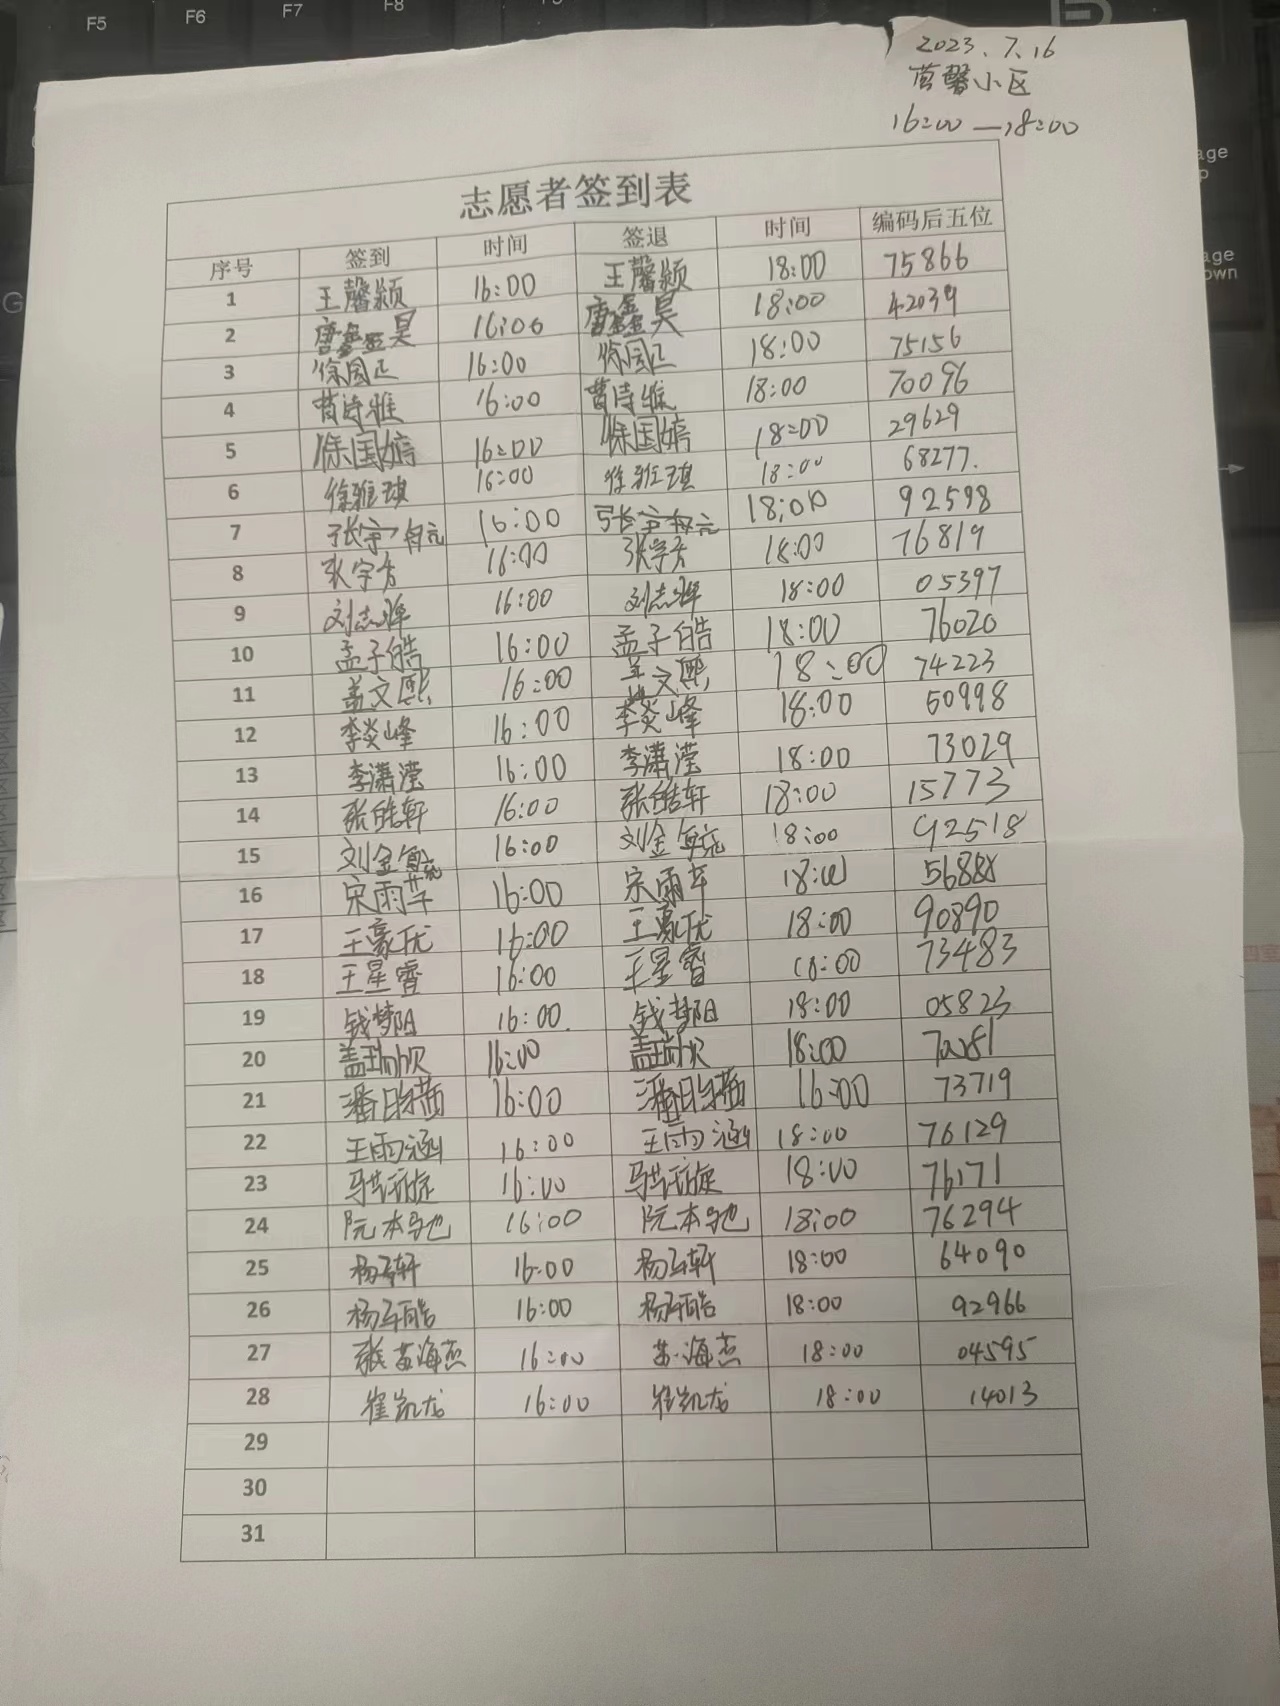 F5 F6 F7 F8
2023.7.16
茵馨小区
16:00—18:00
志愿者签到表
序号 签到 时间 签退 时间 编码后五位
1 王馨颍 16:00 王馨颍 18:00 75866
2 唐鑫昊 16:00 唐鑫昊 18:00 42039
3 徐国正 16:00 徐国正 18:00 75156
4 曹诗雅 16:00 曹诗雅 18:00 70096
5 徐国婷 16:00 徐国婷 18:00 29629
6 徐雅琪 16:00 徐雅琪 18:00 68277.
7 张宇 16:00 张宇 18:00 92598
8 张宇 16:00 张宇 18:00 76819
9 刘志 16:00 刘志 18:00 05397
10 孟子皓 16:00 孟子皓 18:00 76020
11 盖文熙 16:00 盖文熙 18:00 74223
12 李炎峰 16:00 李炎峰 18:00 50998
13 李潇滢 16:00 李潇滢 18:00 73029
14 张皓轩 16:00 张皓轩 18:00 15773
15 刘金 16:00 刘金 18:00 92518
16 宋雨 16:00 宋雨 18:00 5688
17 王豪 16:00 王豪 18:00 90890
18 王星睿 16:00 王星睿 18:00 73483
19 钱梦阳 16:00. 钱梦阳 18:00 05823
20 盖瑞欣 16:00 盖瑞欣 18:00
21 潘 16:00 潘 16:00 73719
22 王雨涵 16:00 王雨涵 18:00 76129
23 马 旋 16:00 马 旋 18:00 76171
24 阮本 16:00 阮本 18:00 76294
25 杨 轩 16:00 杨 轩 18:00 64090
26 杨 皓 16:00 杨 皓 18:00 92966
27 苏海杰 16:00 苏海杰 18:00 04595
28 崔凯龙 16:00 崔凯龙 18:00 14013
29
30
31